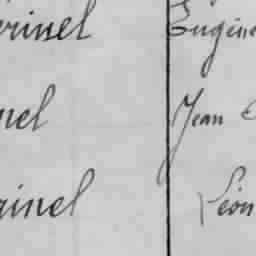 rinel Eugène
nel Jean
rinel Léon